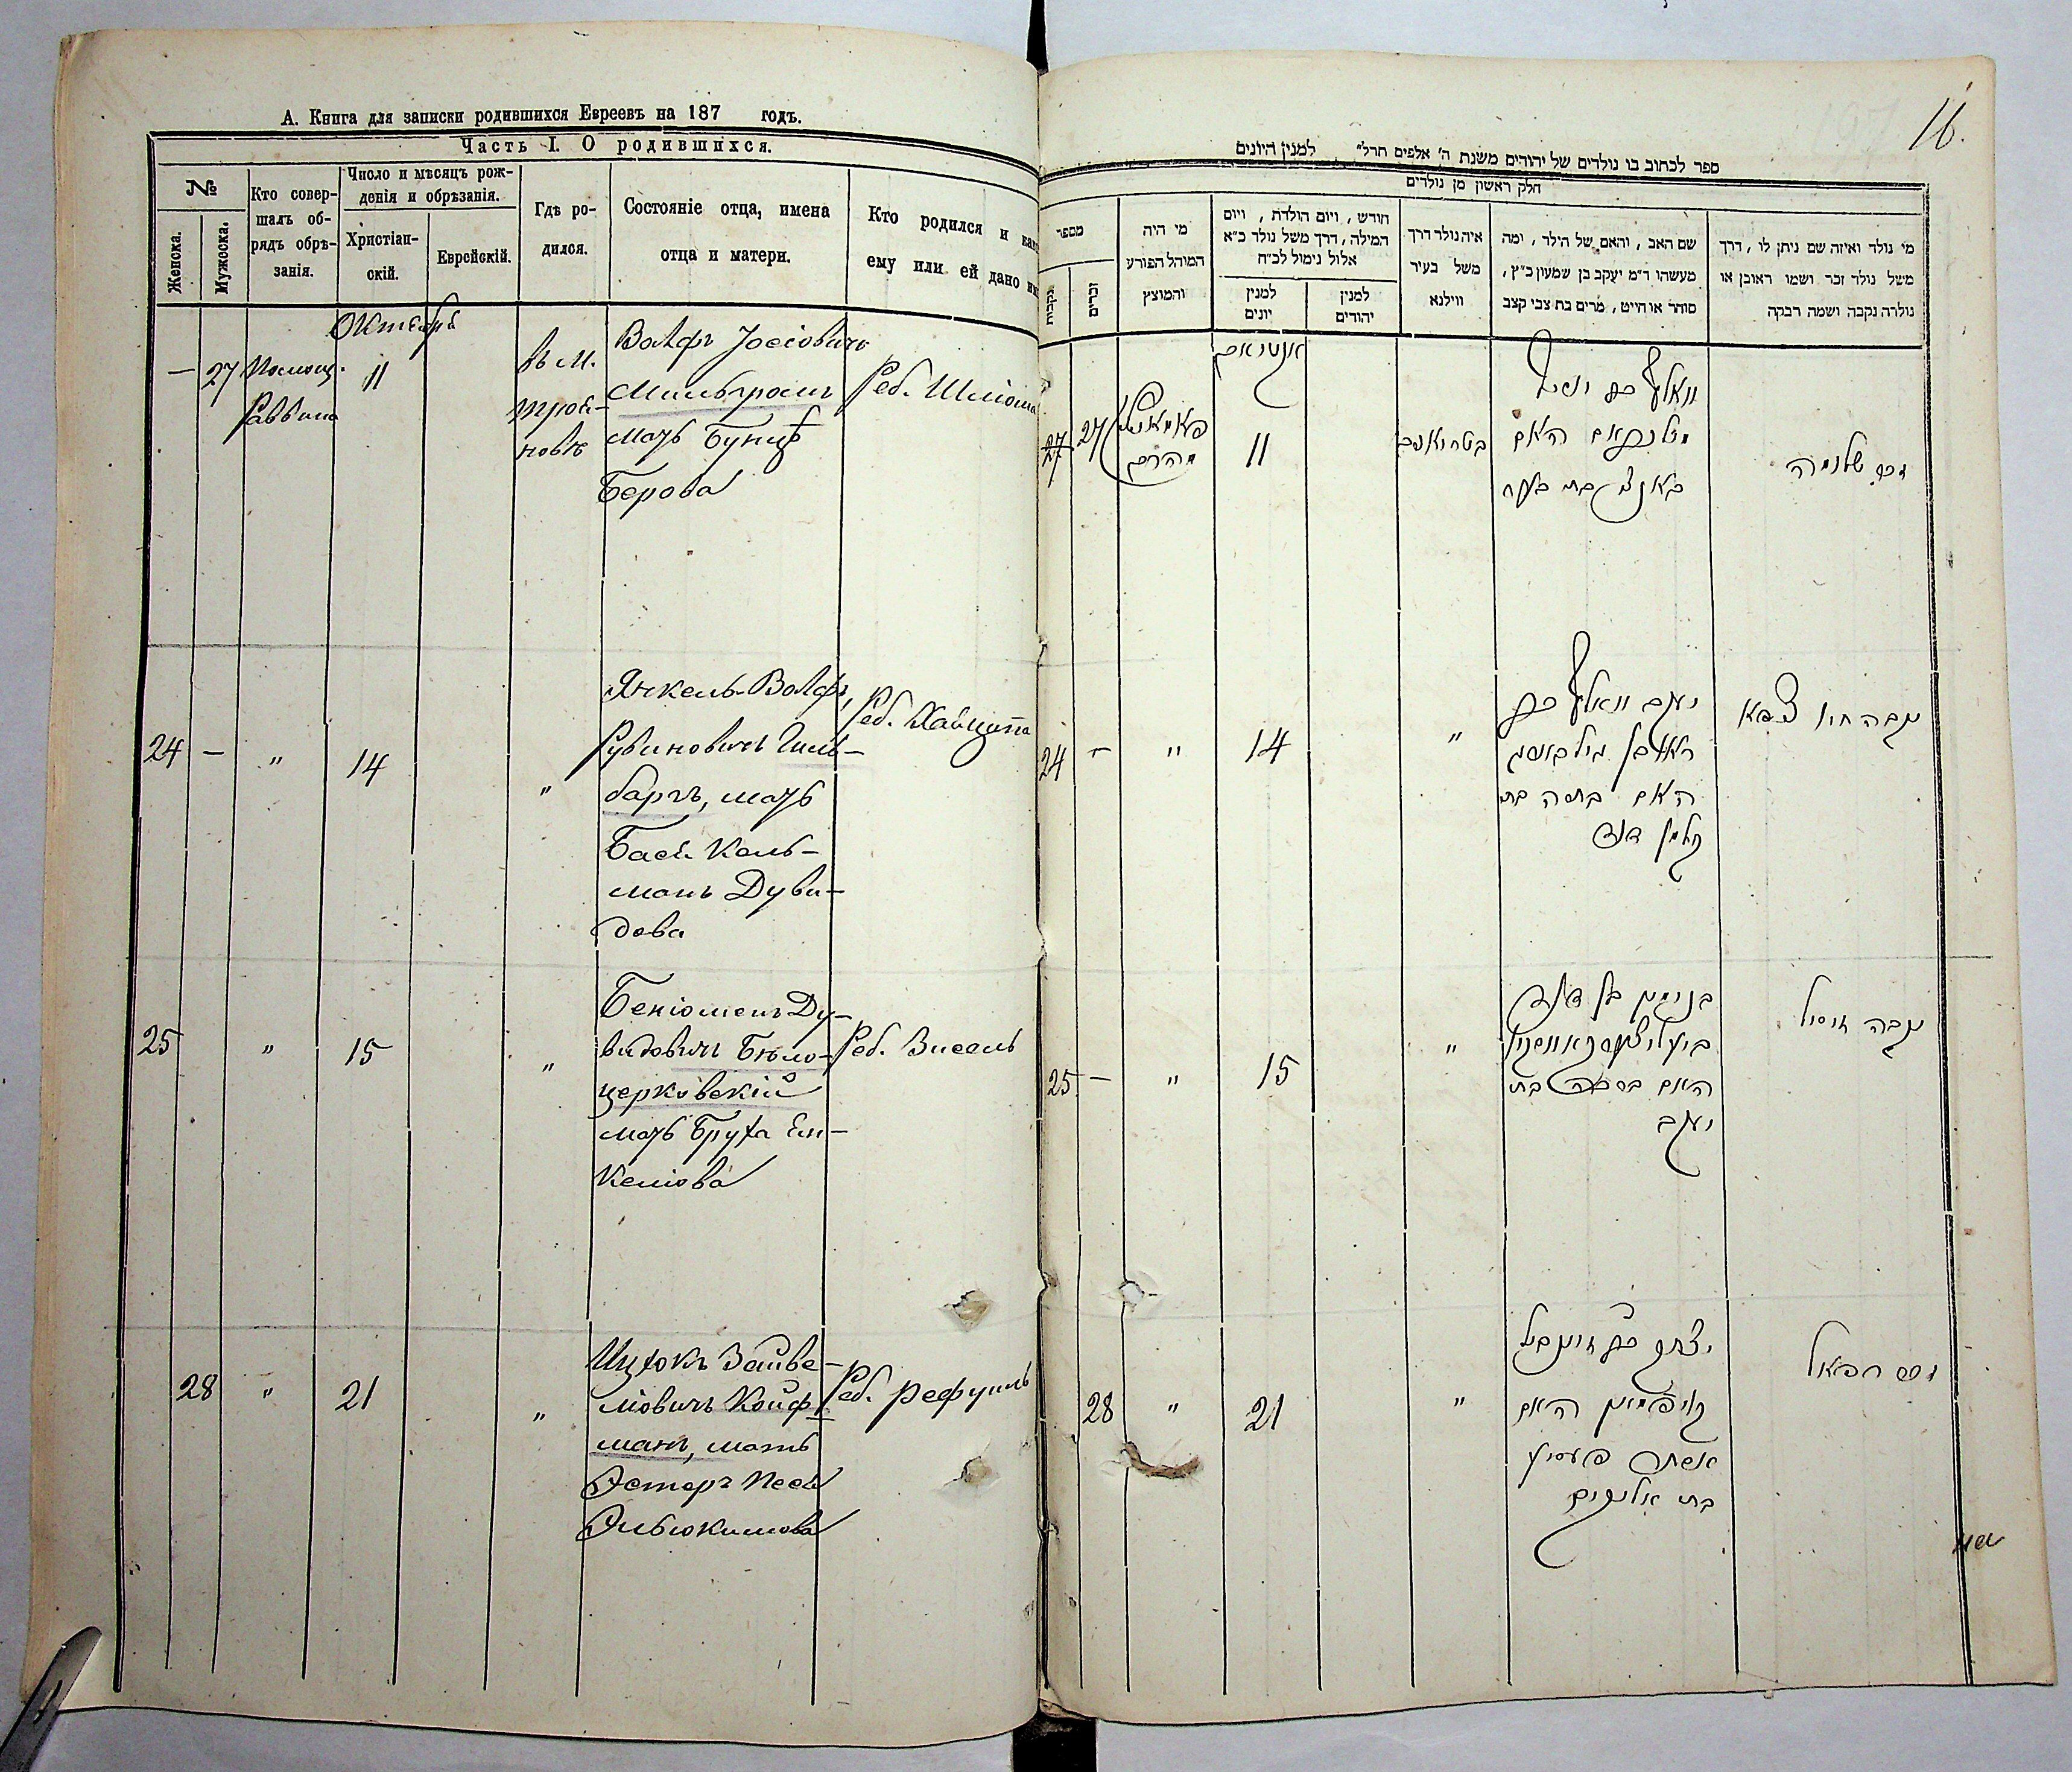 А. Книга для записки родившихся Евреевъ на 187 годъ.
Часть I. О родившихся.
№
Женска.
Мужеска.
Кто совер-
шалъ об-
рядъ обрѣ-
занія.
Число и мѣсяцъ рож-
денія и обрѣзанія.
Христіан-
скій.
Еврейскій.
Гдѣ ро-
дился.
Состояніе отца, имена
отца и матери.
Кто родился и как
ему или ей дано
— 27 Помощ.
Раввина
Октября
11
въ м.
трой-
новѣ
Вольфъ Іосіовичъ
Мильгромъ
мать Бунця
Берова
Реб. Шліома
24 — " 14 "
Янкель-Вольфъ
Рувиновичъ Гиль-
баргъ, мать
Бася Каль-
манъ Дуви-
дова
Реб. Хайципа
25 " 15 "
Беніоменъ Ду-
видовичъ Бѣло-
церковскій
мать Бруха Ен-
келіова
Реб. Зисель
28 " 21 "
Ицхокъ Зайве-
ліовичъ Койф-
манъ, мать
Эстеръ Песя
Эльюкимова
Реб. Рефуиль
16.
ספר לכתוב בו נולדים של יהודים משנת ה' אלפים תרל" למנין היונים
חלק ראשון מן נולדים
מספר
נקבות
זכרים
מי היה
המוהל הפורע
והמוצץ
חורש, ויום הולדת, ויום
המילה, דרך משל נולד כ"א
אלול נימול לכ"ח
למנין
יונים
למנין
יהודים
איה נולד דרך
משל בעיר
ווילנא
שם האב, והאם של הילד, ומה
מעשהו ד"מ יעקב בן שמעון כ"ץ,
סוחר או חייט, מרים בת צבי קצב
מי נולד ואיזה שם ניתן לו, דרך
משל נולד זכר ושמו ראובן או
נולדה נקבה ושמה רבקה
27 27
11
האם
בת בער
זכר שלומה
24 — " 14 "
יעקב וואלף בן
ראובן
האם באסה בת
קלמן דוד
נקבה חיו ציפא
25 — " 15 "
בנימין בן דוד
האם ברכה בת
יעקב
נקבה זיסיל
28 " 21 "
יצחק בן זיינביל
קויפמאן האם
אסתר פעסיא
בת אליקים
זכר רפאל